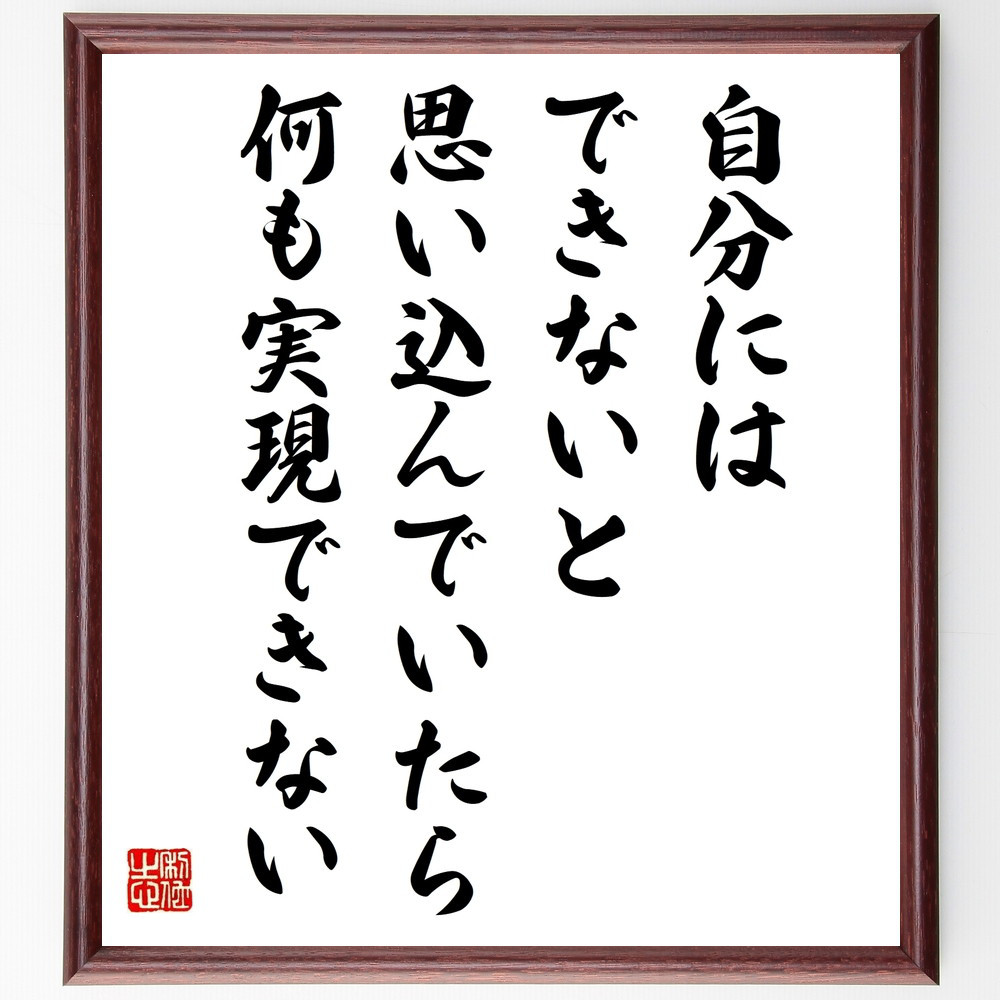 自分には
できないと
思い込んでいたら
何も実現できない